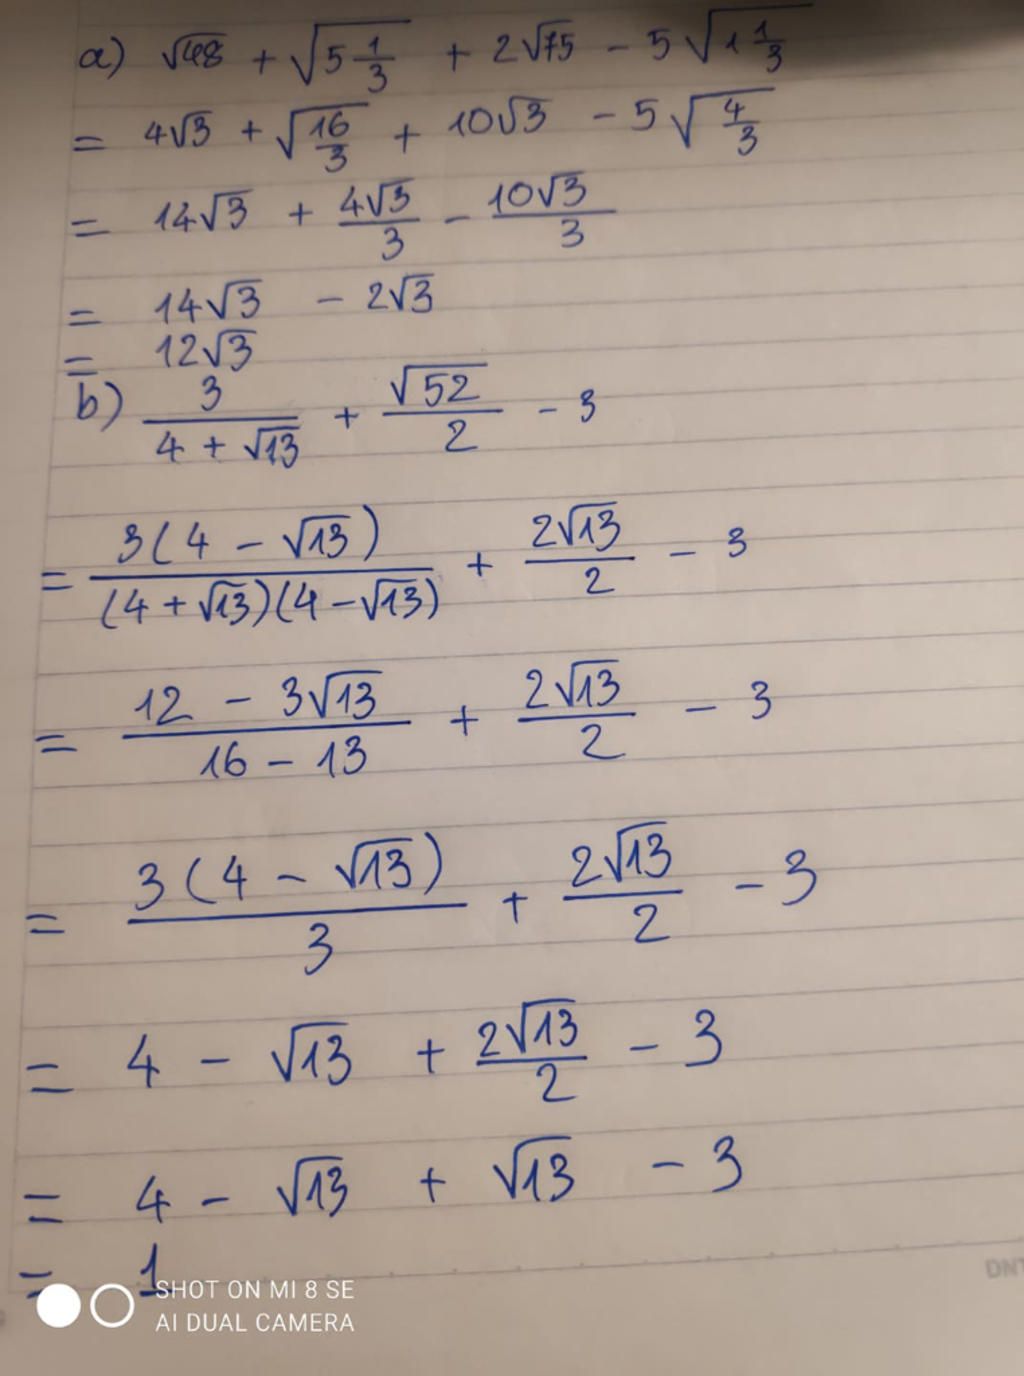 a) √48 + √(5 1/3) + 2√75 - 5√(1 1/3)
= 4√3 + √(16/3) + 10√3 - 5√(4/3)
= 14√3 + 4√3/3 - 10√3/3
= 14√3 - 2√3
= 12√3
b) 3/(4 + √13) + √52/2 - 3
= 3(4 - √13)/((4 + √13)(4 - √13)) + 2√13/2 - 3
= (12 - 3√13)/(16 - 13) + 2√13/2 - 3
= 3(4 - √13)/3 + 2√13/2 - 3
= 4 - √13 + 2√13/2 - 3
= 4 - √13 + √13 - 3
= 1
DNT
SHOT ON MI 8 SE
AI DUAL CAMERA